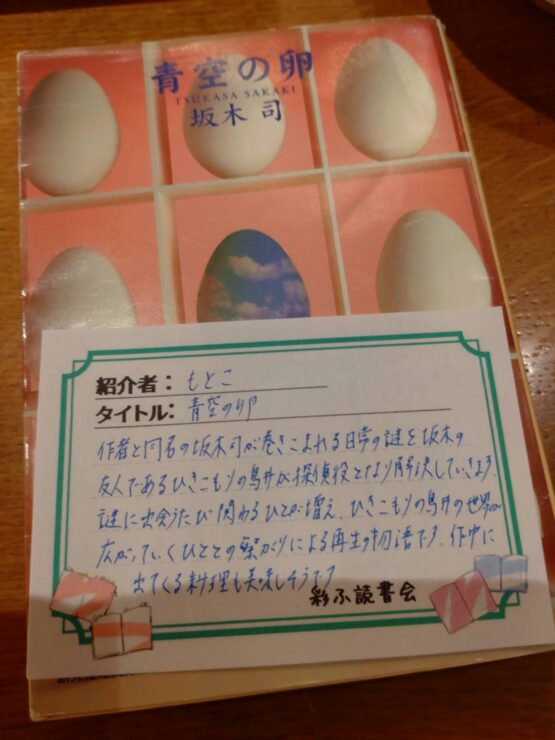 青空の卵
TSUKASA SAKAKI
坂木 司
紹介者：もとこ
タイトル：青空の卵
作者と同名の坂木司が巻きこまれる日常の謎を坂木の
友人であるひきこもりの鳥井が探偵役となり解決していきます。
謎に出会うたび関わるひとが増え、ひきこもりの鳥井の世界が
広がっていくひととの繋がりによる再生の物語です。作中に
出てくる料理も美味しそうです
彩ふ読書会